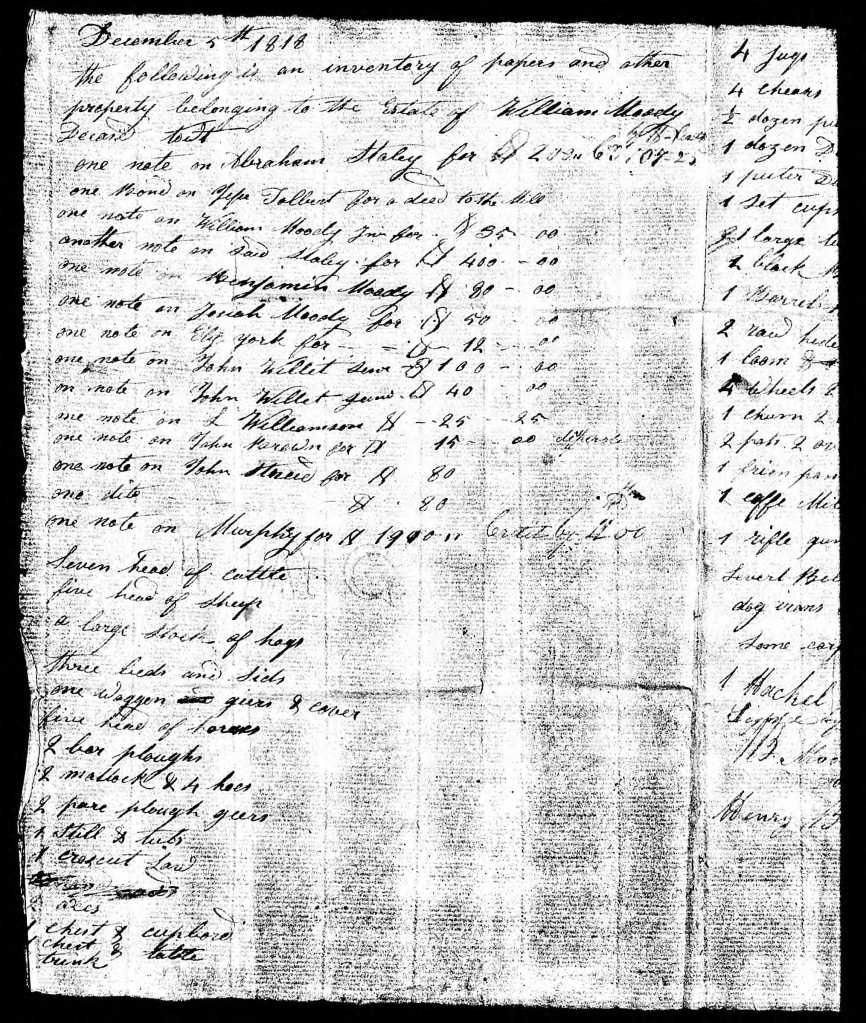 December 5th 1818
the following is an inventory of papers and other
property belonging to the Estate of William Moody
Decasd towit
one note on Abraham Staley for $ 200
one Bond on Tolbert for a deed to the Mill
one note on William Moody Jnr for $ 35 - 00
another note on said Staley for $ 400 - 00
one note on Benjamin Moody $ 80 - 00
one note on Josiah Moody for $ 50 - 00
one note on Eli York for - $ 12 - 00
one note on John Willit senr $ 100 - 00
on note on John Willet junr $ 40 00
one note on Williamson $ - 25 - 25
one note on John Brown for $ 15 - 00
one note on John for $ 80
one dito $ . 80
one note on Murphy for $
Seven head of cattle
five head of sheep
a large stock of hogs
three beds and sids
one waggen geers & cover
five head of horses
2 bar ploughs
2 matock & 4 hoes
2 pare plough geers
1 still & tubs
1 croscut saw
axes
1 chest & cupbord
1 chest & table
trunk
4 jugs
4 chears
½ dozen
1 dozen
1 puter
1 set cups
1 large
1 black
1 Barrel
2 raw hide
1 loom &
4 wheels &
1 churn 2
2 pots 2
1 frien pan
1 coffe Mill
1 rifle gun
severl
dog irons
some
1 Hachel
Henry